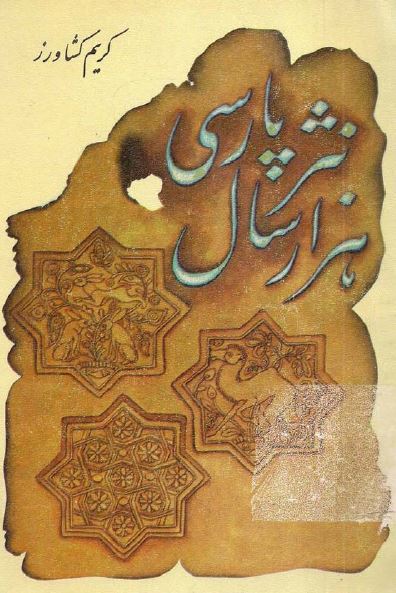 کریم کشاورز
هزار سال
نثر پارسی